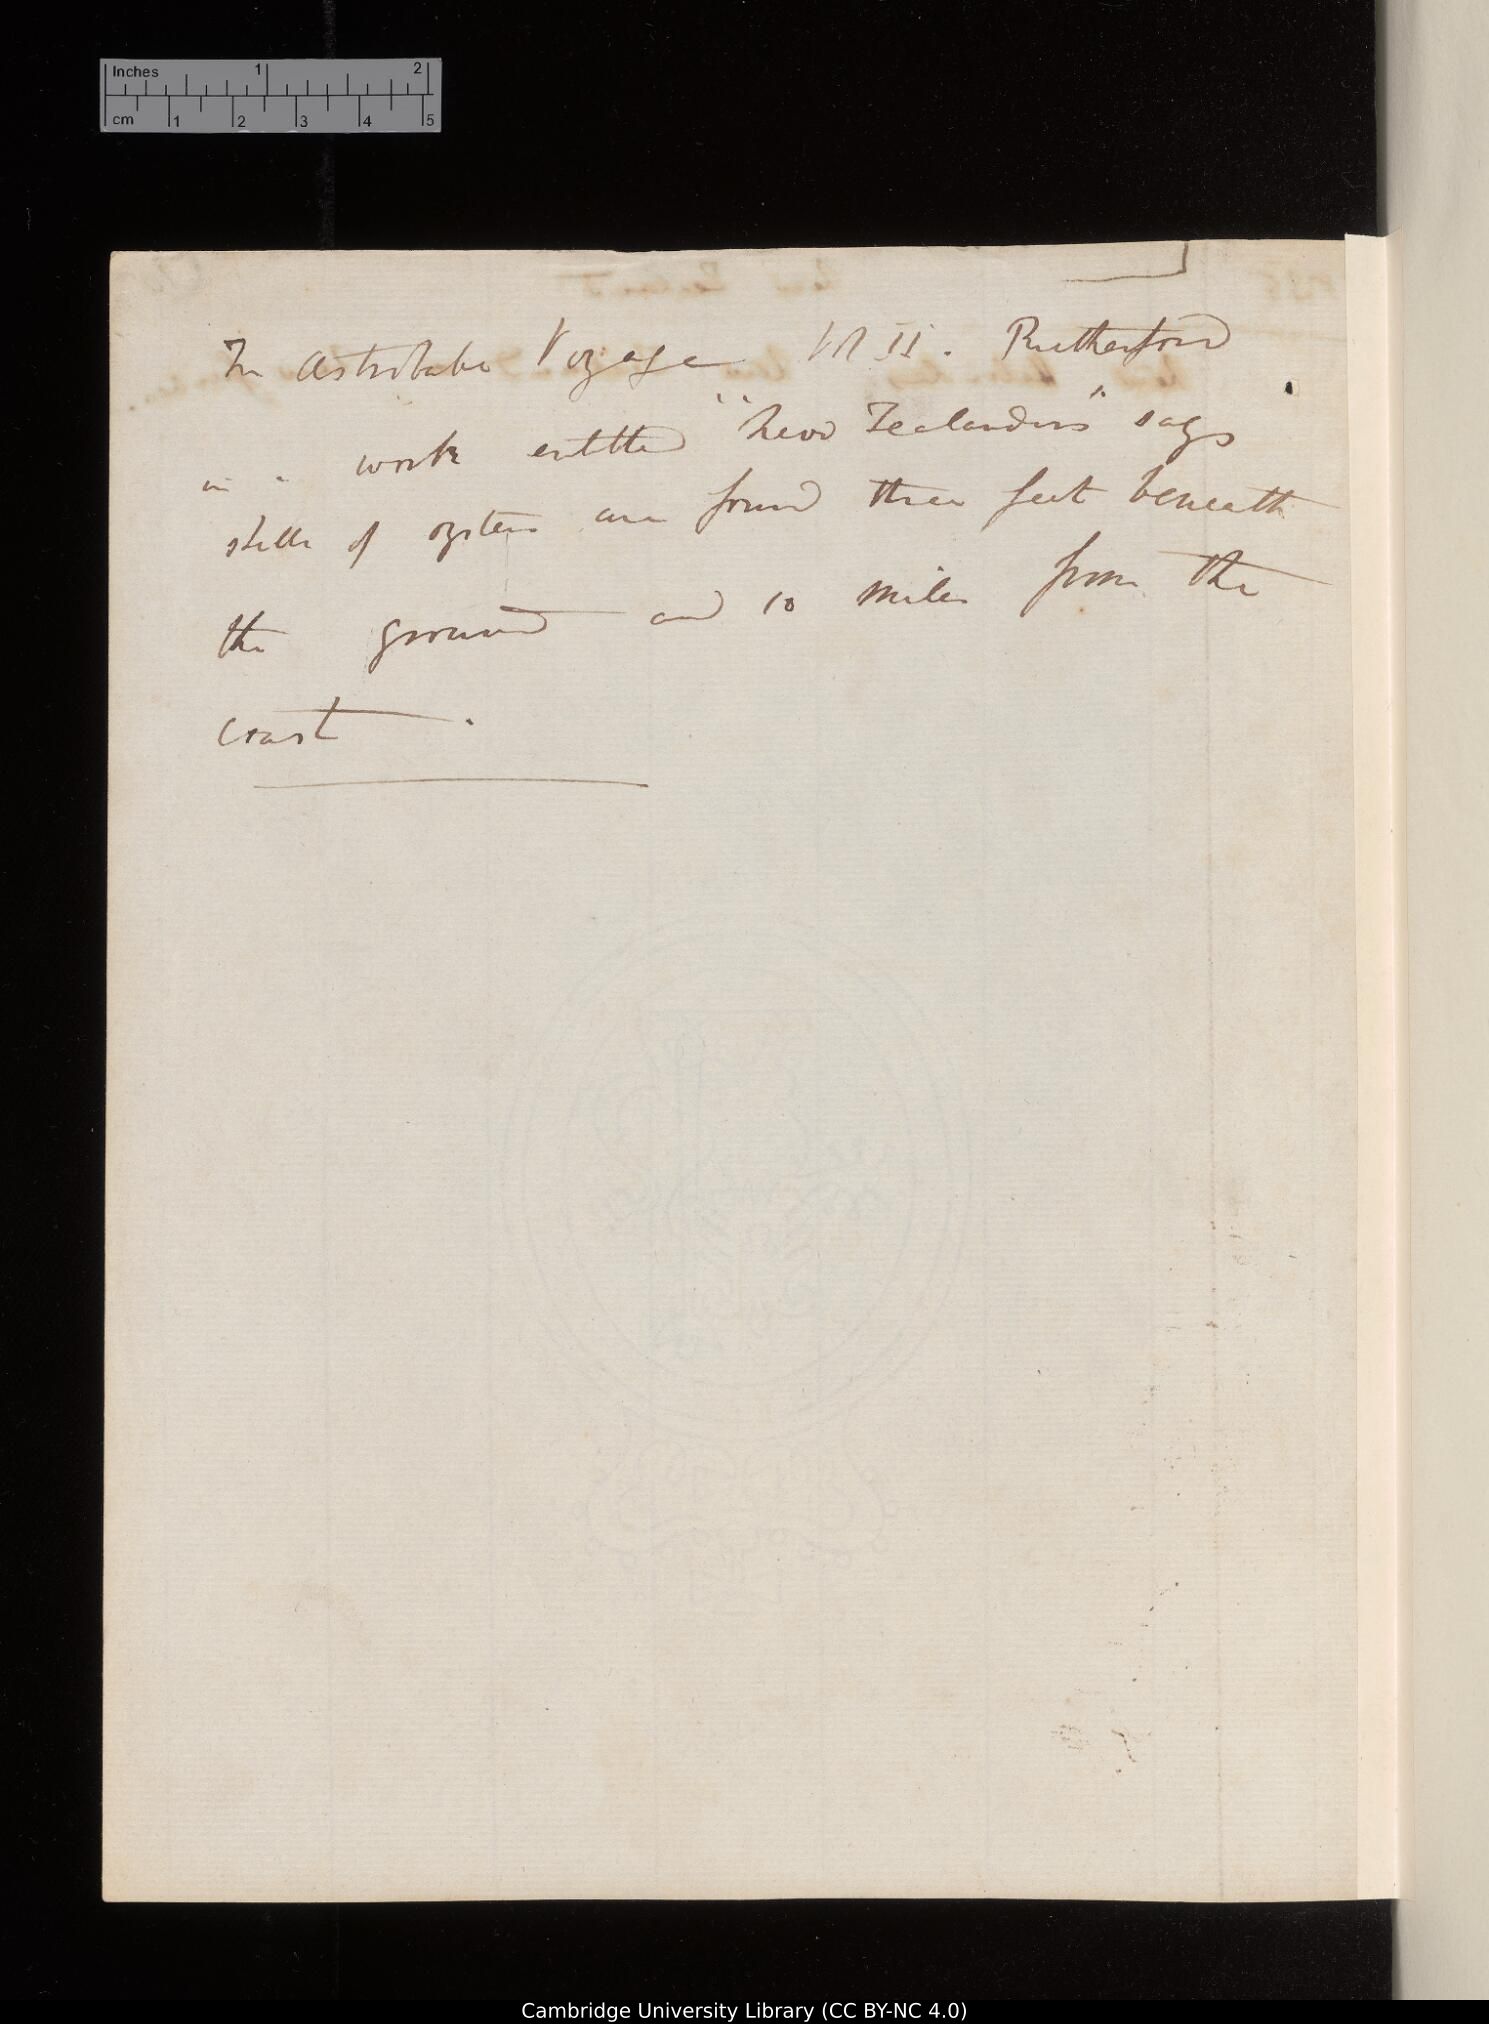 Inches 1 2
cm 1 2 3 4 5
In Astrolabe Voyage Vol II. Rutherford
in a work entitled "New Zealanders" says
shells of oysters are found three feet beneath
the ground and 10 miles from the
coast.
Cambridge University Library (CC BY-NC 4.0)